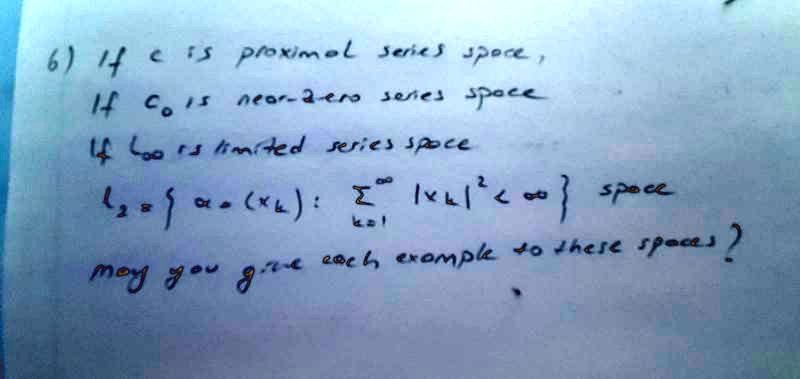 6) If c is proximal series space,
If c₀ is near-zero series space
If l∞ is limited series space
l₂ = { x = (xₖ) : ∑_{k=1}^{∞} |xₖ|² < ∞ } space
may you give each example to these spaces?